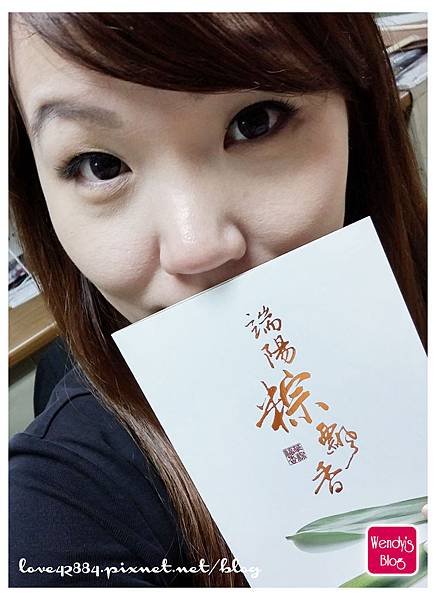 端陽粽飄香
love42884.pixnet.net/blog
Wendy's
Blog